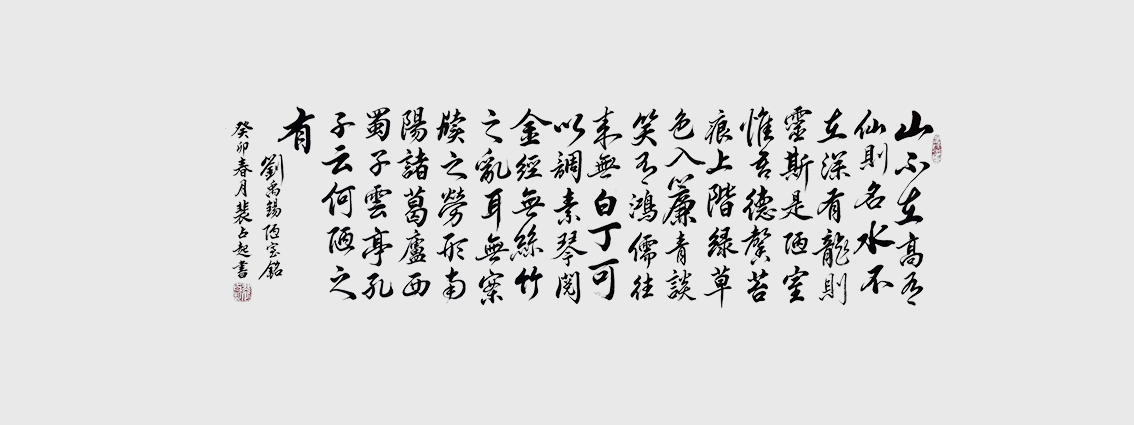 山不在高有
仙則名水不
在深有龍則
靈斯是陋室
惟吾德馨苔
痕上階緑草
色入簾青談
笑有鴻儒往
来無白丁可
以調素琴閲
金經無絲竹
之亂耳無案
牘之勞形南
陽諸葛廬西
蜀子雲亭孔
子云何陋之
有
劉禹錫陋室銘
癸卯春月裴占起書